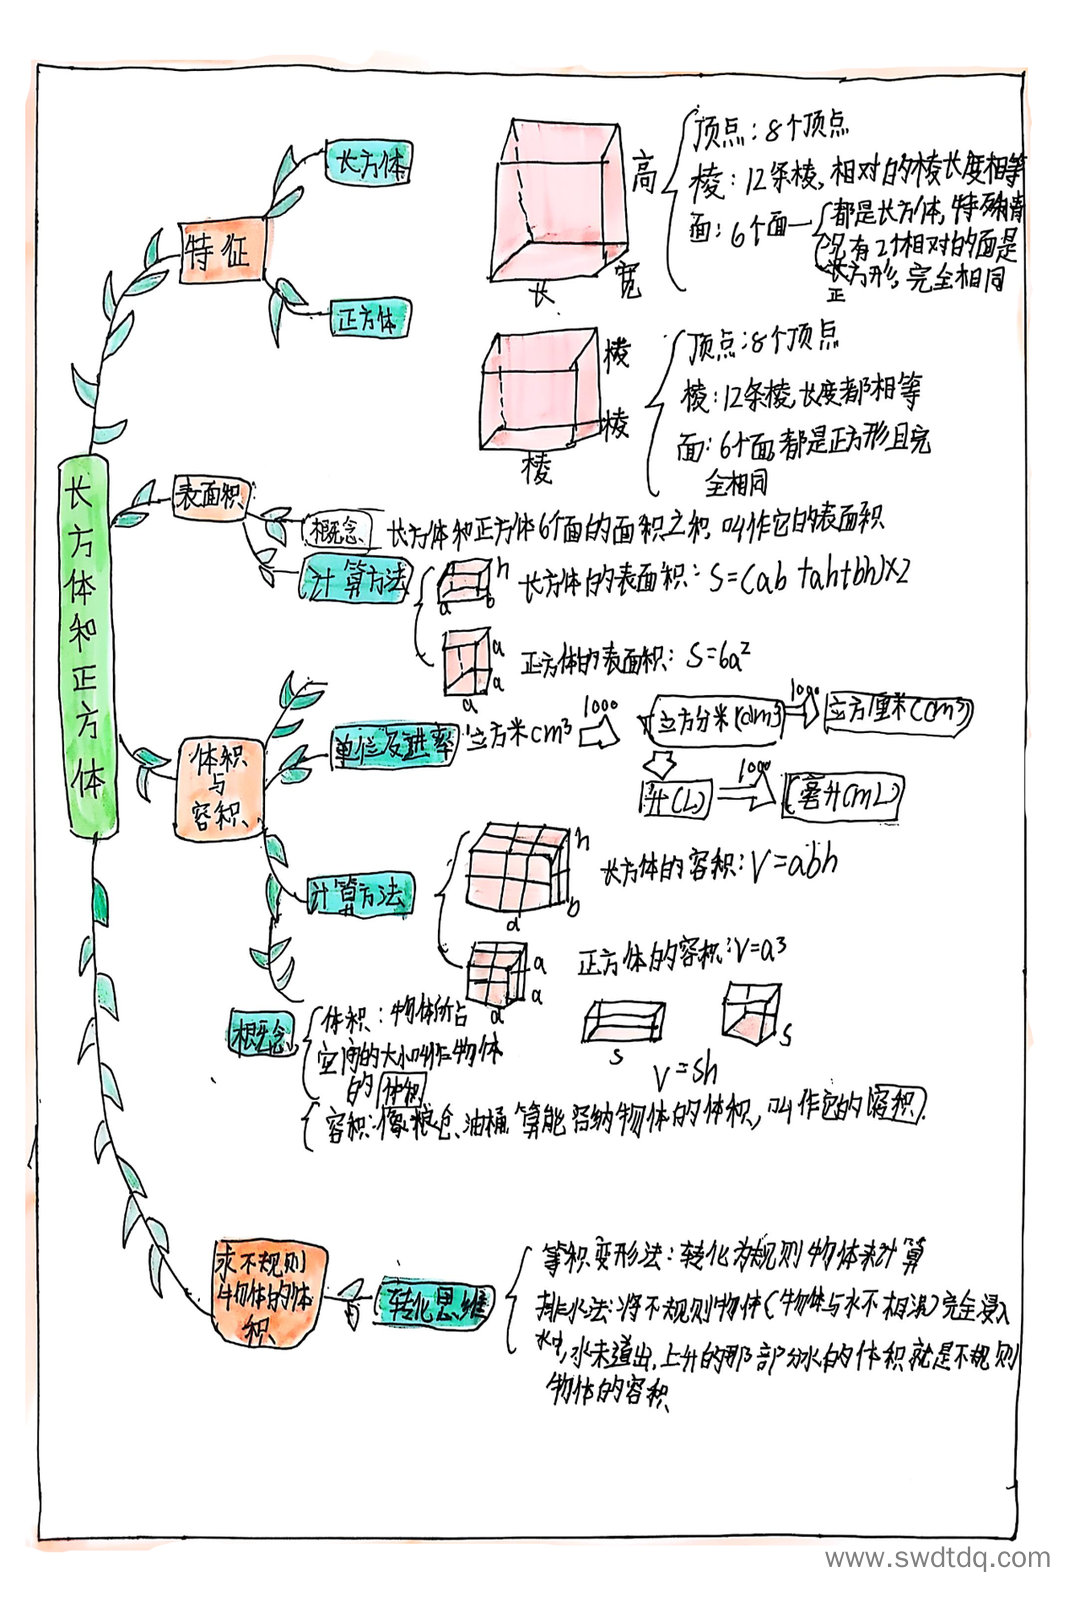 长方体和正方体
特征
长方体
高
长
宽
顶点：8个顶点
棱：12条棱，相对的棱长度相等
面：6个面
都是长方体，特殊情
况有2个相对的面是
长方形，完全相同
正
正方体
棱
棱
棱
顶点：8个顶点
棱：12条棱，长度都相等
面：6个面，都是正方形且完
全相同
表面积
概念
长方体和正方体6个面的面积之积，叫作它的表面积
计算方法
h
a
b
长方体的表面积：S=(ab+ah+bh)×2
a
a
a
正方体的表面积：S=6a²
体积
与
容积
单位及进率
立方米cm³
1000
立方分米(dm³)
1000
立方厘米(cm³)
升(L)
1000
毫升(mL)
计算方法
h
b
a
长方体的容积：V=abh
a
a
a
正方体的容积：V=a³
S
S
V=Sh
概念
体积：物体所占
空间的大小叫作物体
的体积
容积：像粮仓、油桶 算能容纳物体的体积，叫作它的容积.
求不规则
物体的体
积
转化思维
等积变形法：转化为规则物体来计算
排水法：将不规则物体(物体与水不相流)完全浸入
水中，水未溢出，上升的那部分水的体积就是不规则
物体的容积
www.swdtdq.com